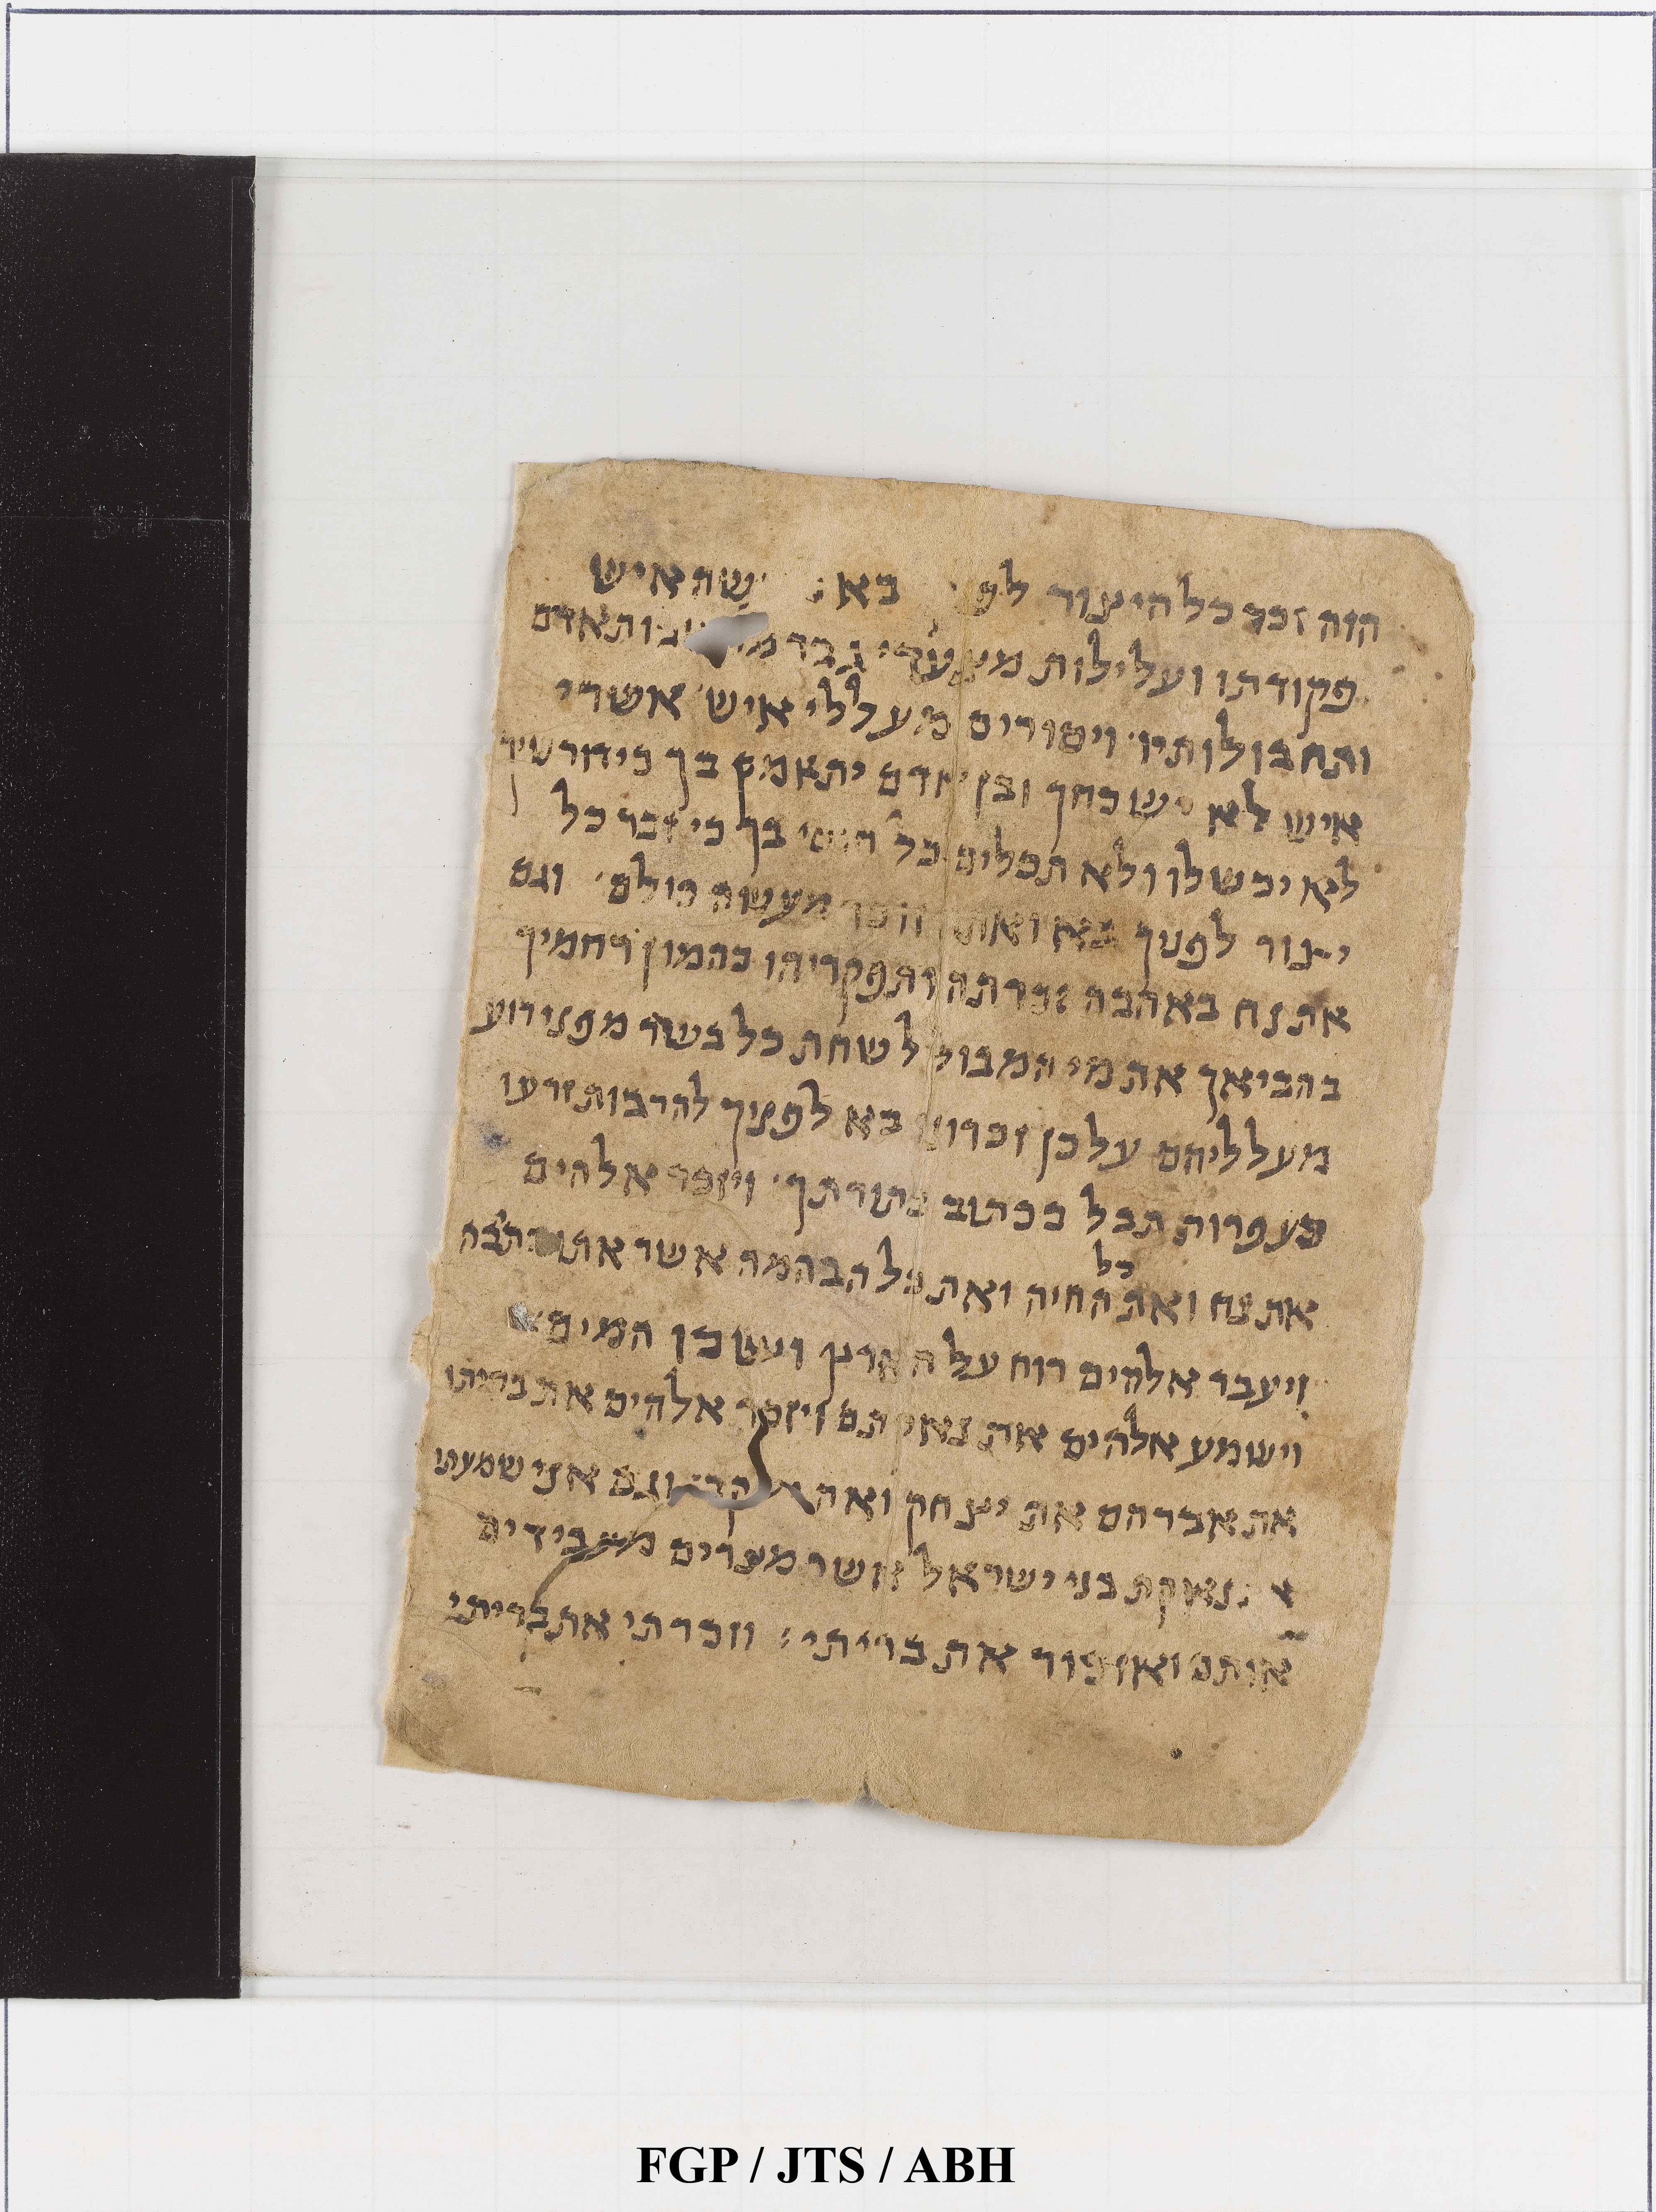 הזה זכר כל היצור בא איש
פקודתו ועלילות מצעדי גבר אדם
ותחבולותיו ויסורים מעללי איש אשרי
איש לא ישכחך ובן אדם יתאמץ בך כי דורשיך
לא יכשלו ולא תכלים כל חוסי בך כי זכר כל
יצור לפניך בא ואתה מעשה כולם וגם
את נח באהבה זכרתה ותפקדיהו בהמון רחמיך
בהביאך את מי המבול לשחת כל בשר מפני רוע
מעלליהם על כן זכרונו בא לפניך להרבות זרעו
כעפרות תבל ככתוב בתורתך ויזכר אלהים
את נח ואת כל החיה ואת כל הבהמה אשר אתו בתבה
ויעבר אלהים רוח על הארץ וישכו המים
וישמע אלהים את נאקתם ויזכר אלהים את בריתו
את אברהם את יצחק ואת וגם אני שמעתי
נאקת בני ישראל אשר מצרים מעבידים
אותם ואזכור את בריתי וזכרתי את בריתי
FGP / JTS / ABH